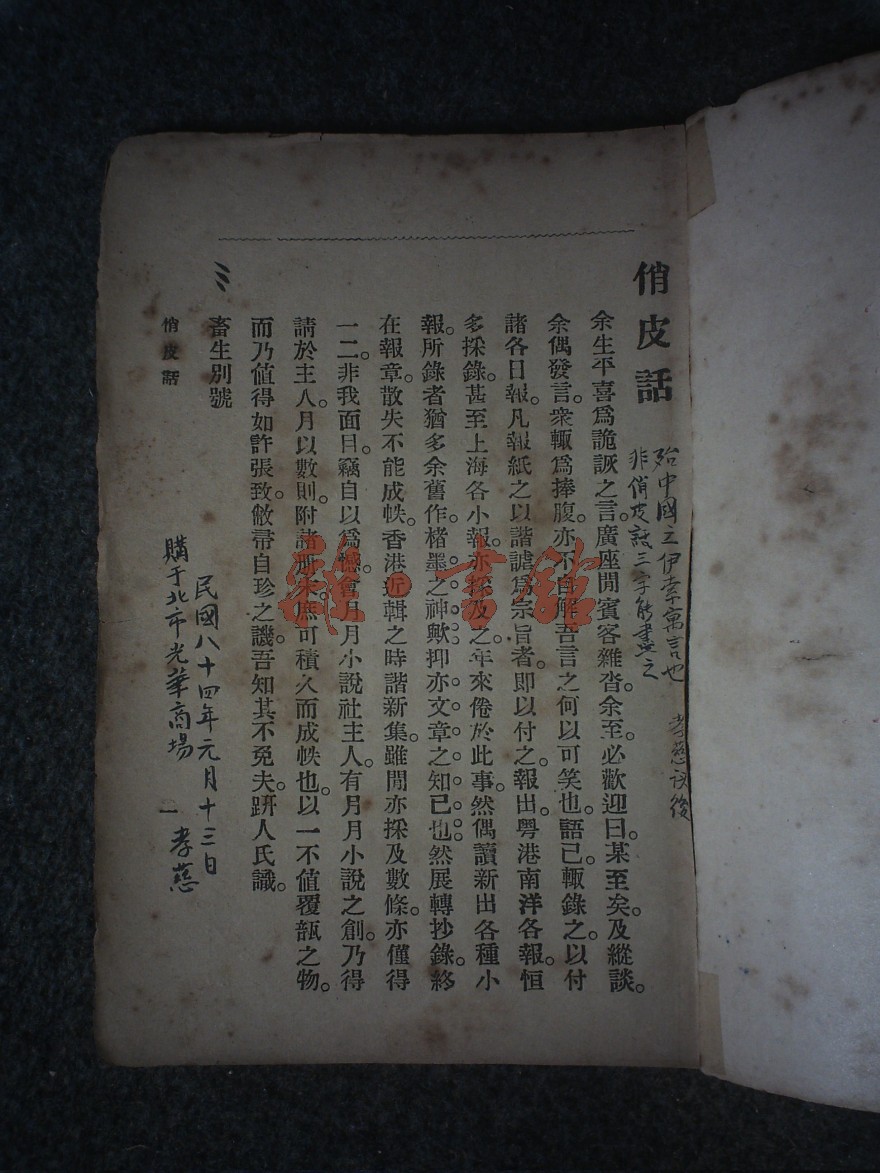 俏皮話
殆中國之伊索寓言也
非俏皮話三字能盡之
孝慈讀後
余生平喜爲詭誕之言。廣座閒賓客雜沓。余至。必歡迎曰。某至矣。及縱談。
余偶發言。衆輒爲捧腹。亦不自解吾言之何以可笑也。語已。輒錄之。以付
諸各日報。凡報紙之以諧謔爲宗旨者。即以付之。報出。粤港南洋各報。恒
多採錄。甚至上海各小報。亦採及之。年來倦於此事。然偶讀新出各種小
報。所錄者猶多余舊作。楮墨之神歟。抑亦文章之知已也。然展轉抄錄。終
在報章。散失不能成帙。香港近輯之時諧新集。雖閒亦採及數條。亦僅得
一二。非我面目。竊自以爲憾。會月月小說社主人。有月月小說之創。乃得
請於主人。月以數則。附諸册末。庶可積久而成帙也。以一不值覆瓿之物。
而乃値得如許張致。敝帚自珍之譏。吾知其不免夫。趼人氏識。
畜生別號
俏皮話
民國八十四年元月十三日
購于北市光華商場
孝慈
雅·書館